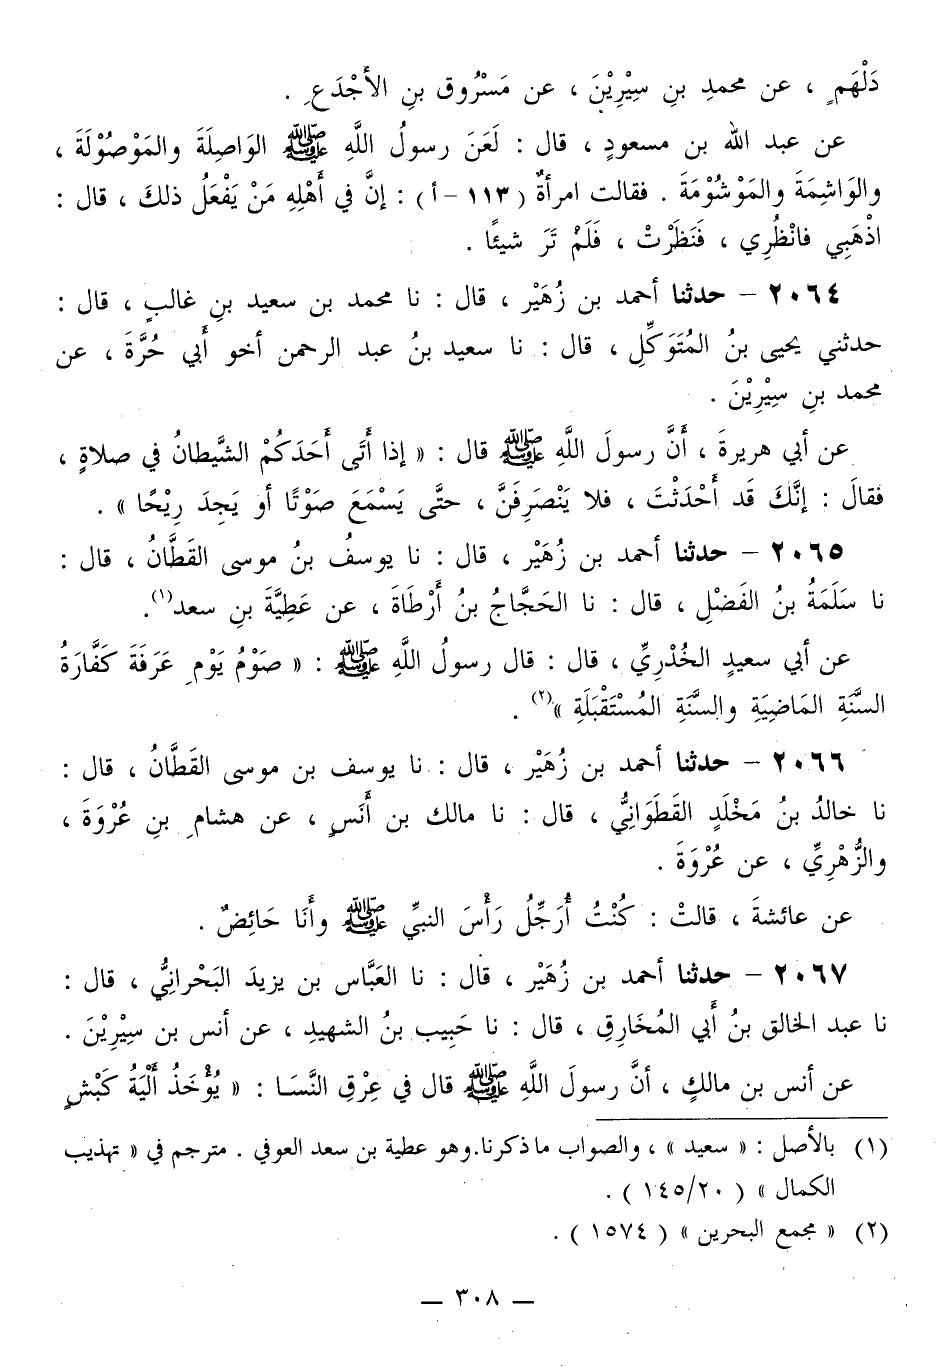 دَلْهَمٍ ، عن محمدِ بنِ سِيْرِيْنَ ، عن مَسْرُوق بنِ الأجْدَعِ .
عن عبد الله بن مسعودٍ ، قال : لَعَنَ رسولُ اللَّهِ ﷺ الوَاصِلَةَ والمَوْصُوْلَةَ ،
والوَاشِمَةَ والمَوْشُوْمَةَ . فقالت امرأةٌ ( ١١٣ - أ ) : إنَّ في أَهْلِهِ مَنْ يَفْعَلُ ذلكَ ، قال :
اذْهَبِي فانْظُرِي ، فَنَظَرَتْ ، فَلَمْ تَرَ شيئًا .
٢٠٦٤ - حدثنا أحمد بن زُهَيْر ، قال : نا محمد بن سعيد بنِ غالبٍ ، قال :
حدثني يحيى بنُ المُتَوَكِّلِ ، قال : نا سعيد بنُ عبد الرحمن أخو أَبي حُرَّةَ ، عن
محمد بنِ سِيْرِيْنَ .
عن أبي هريرةَ ، أنَّ رسولَ اللَّهِ ﷺ قال : « إذا أَتَى أَحَدَكُمْ الشَّيطانُ في صلاةٍ ،
فقالَ : إنَّكَ قَد أَحْدَثْتَ ، فلا يَنْصَرِفَنَّ ، حتَّى يَسْمَعَ صَوْتًا أو يَجِدَ رِيْحًا » .
٢٠٦٥ - حدثنا أحمد بن زُهَيْر ، قال : نا يوسفُ بنُ موسى القَطَّانُ ، قال :
نا سَلَمَةُ بنُ الفَضْلِ ، قال : نا الحَجَّاجُ بنُ أَرْطَاةَ ، عن عَطِيَّةَ بنِ سعد(١).
عن أبي سعيدٍ الخُدْرِيِّ ، قال : قال رسولُ اللَّهِ ﷺ : « صَوْمُ يَوْمِ عَرَفَةَ كَفَّارَةُ
السَّنَةِ المَاضِيَةِ والسَّنَةِ المُسْتَقْبَلَةِ »(٢) .
٢٠٦٦ - حدثنا أحمد بن زُهَيْر ، قال : نا يوسف بن موسى القَطَّانُ ، قال :
نا خالدُ بنُ مَخْلَدٍ القَطَوَانِيُّ ، قال : نا مالك بن أَنَسٍ ، عن هشامِ بنِ عُرْوَةَ ،
والزُّهْرِيِّ ، عن عُرْوَةَ .
عن عائشةَ ، قالتْ : كُنْتُ أُرَجِّلُ رَأْسَ النبيِّ ﷺ وأَنَا حَائِضٌ .
٢٠٦٧ - حدثنا أحمد بن زُهَيْر ، قال : نا العَبَّاس بن يزيدَ البَحْرانِيُّ ، قال :
نا عبد الخالق بنُ أَبي المُخَارِقِ ، قال : نا حَبِيب بنُ الشهيدِ ، عن أنس بن سِيْرِيْنَ .
عن أنس بن مالكٍ ، أنَّ رسولَ اللَّهِ ﷺ قال في عِرْقِ النَّسَا : « يُؤْخَذُ أَلْيَةُ كَبْشٍ
(١) بالأصل : « سعيد » ، والصواب ما ذكرنا. وهو عطية بن سعد العوفي . مترجم في « تهذيب
الكمال » ( ١٤٥/٢٠ ) .
(٢) « مجمع البحرين » ( ١٥٧٤ ) .
— ٣٠٨ —